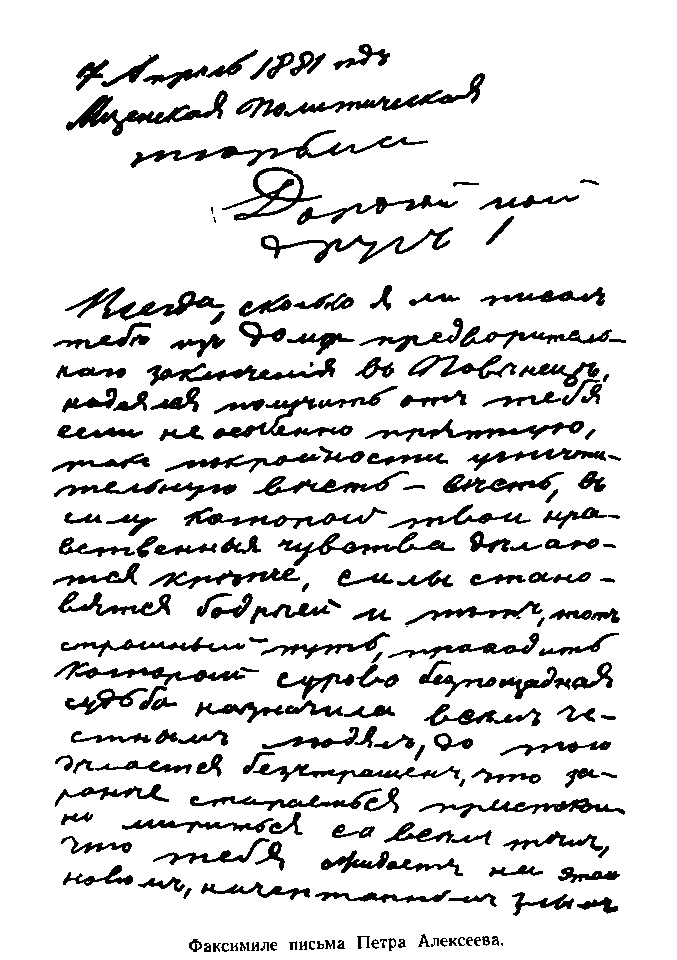 7 Апрель 1881 годъ
Мценская Политическая
тюрьма
Дорогой мой
другъ!
Всегда, сколько я ни писалъ
тебѣ изъ дома предворитель-
наго заключенія въ Повѣнецъ,
надѣялся получить отъ тебя
если не особенно пріятную,
такъ покрайности
тельную вѣсть – вѣсть, въ
силу которой твои нра-
вственныя чувства дѣлаю-
тся крѣпче, силы стано-
вятся бодрѣей и тотъ, тотъ
страшный путь, проходить
который сурово безпощадная
судьба назначила всемъ че-
стнымъ людямъ, до того
дѣлается безстрашенъ, что за-
ранѣе стараешься
но мириться со всемъ темъ,
что тебя ожидаетъ на этомъ
новомъ,
Факсимиле письма Петра Алексеева.